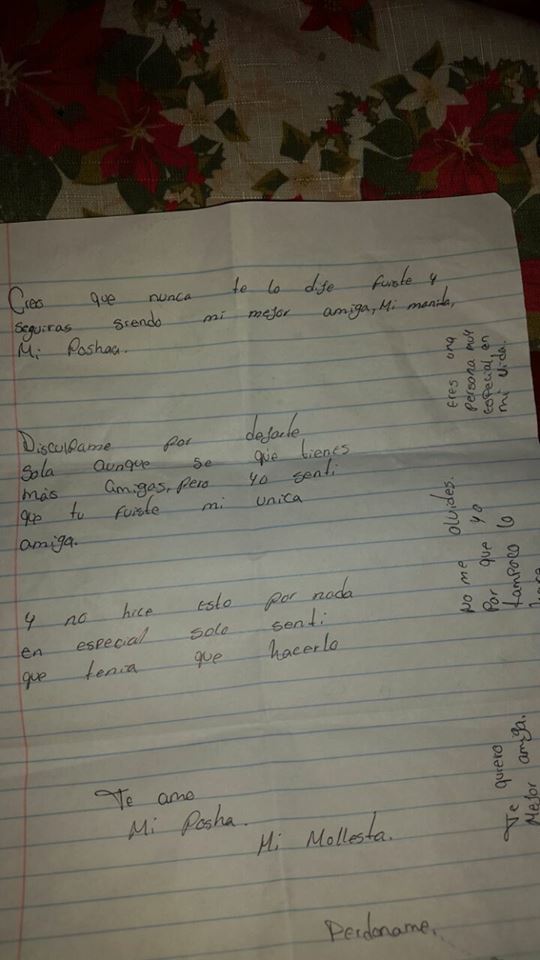 Creo que nunca te lo dije fuiste y
seguiras siendo mi mejor amiga, Mi manita,
Mi Poshaa.
Disculpame por dejarte
sola aunque se que tienes
más amigas, pero yo senti
que tu fuiste mi unica
amiga.
y no hice esto por nada
en especial solo senti
que tenia que hacerlo
Te amo
Mi Posha.
Mi Mollesta.
Perdoname.
Eres una
persona muy
especial en
mi vida.
No me olvides.
Por que yo
tampoco lo
Te quiero
Mejor amiga.